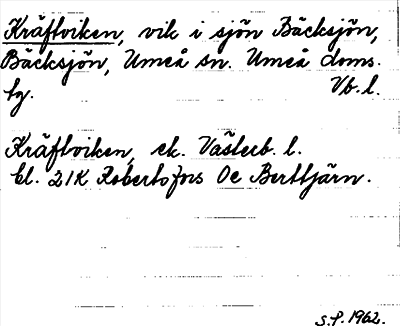 Kräftviken, vik i sjön Bäcksjön,
Bäcksjön, Umeå sn. Umeå doms.
tg. Vb. l.
Kräftviken, ek. Västerb. l.
bl. 21K Robertsfors Oc Berttjärn.
S.P. 1962.